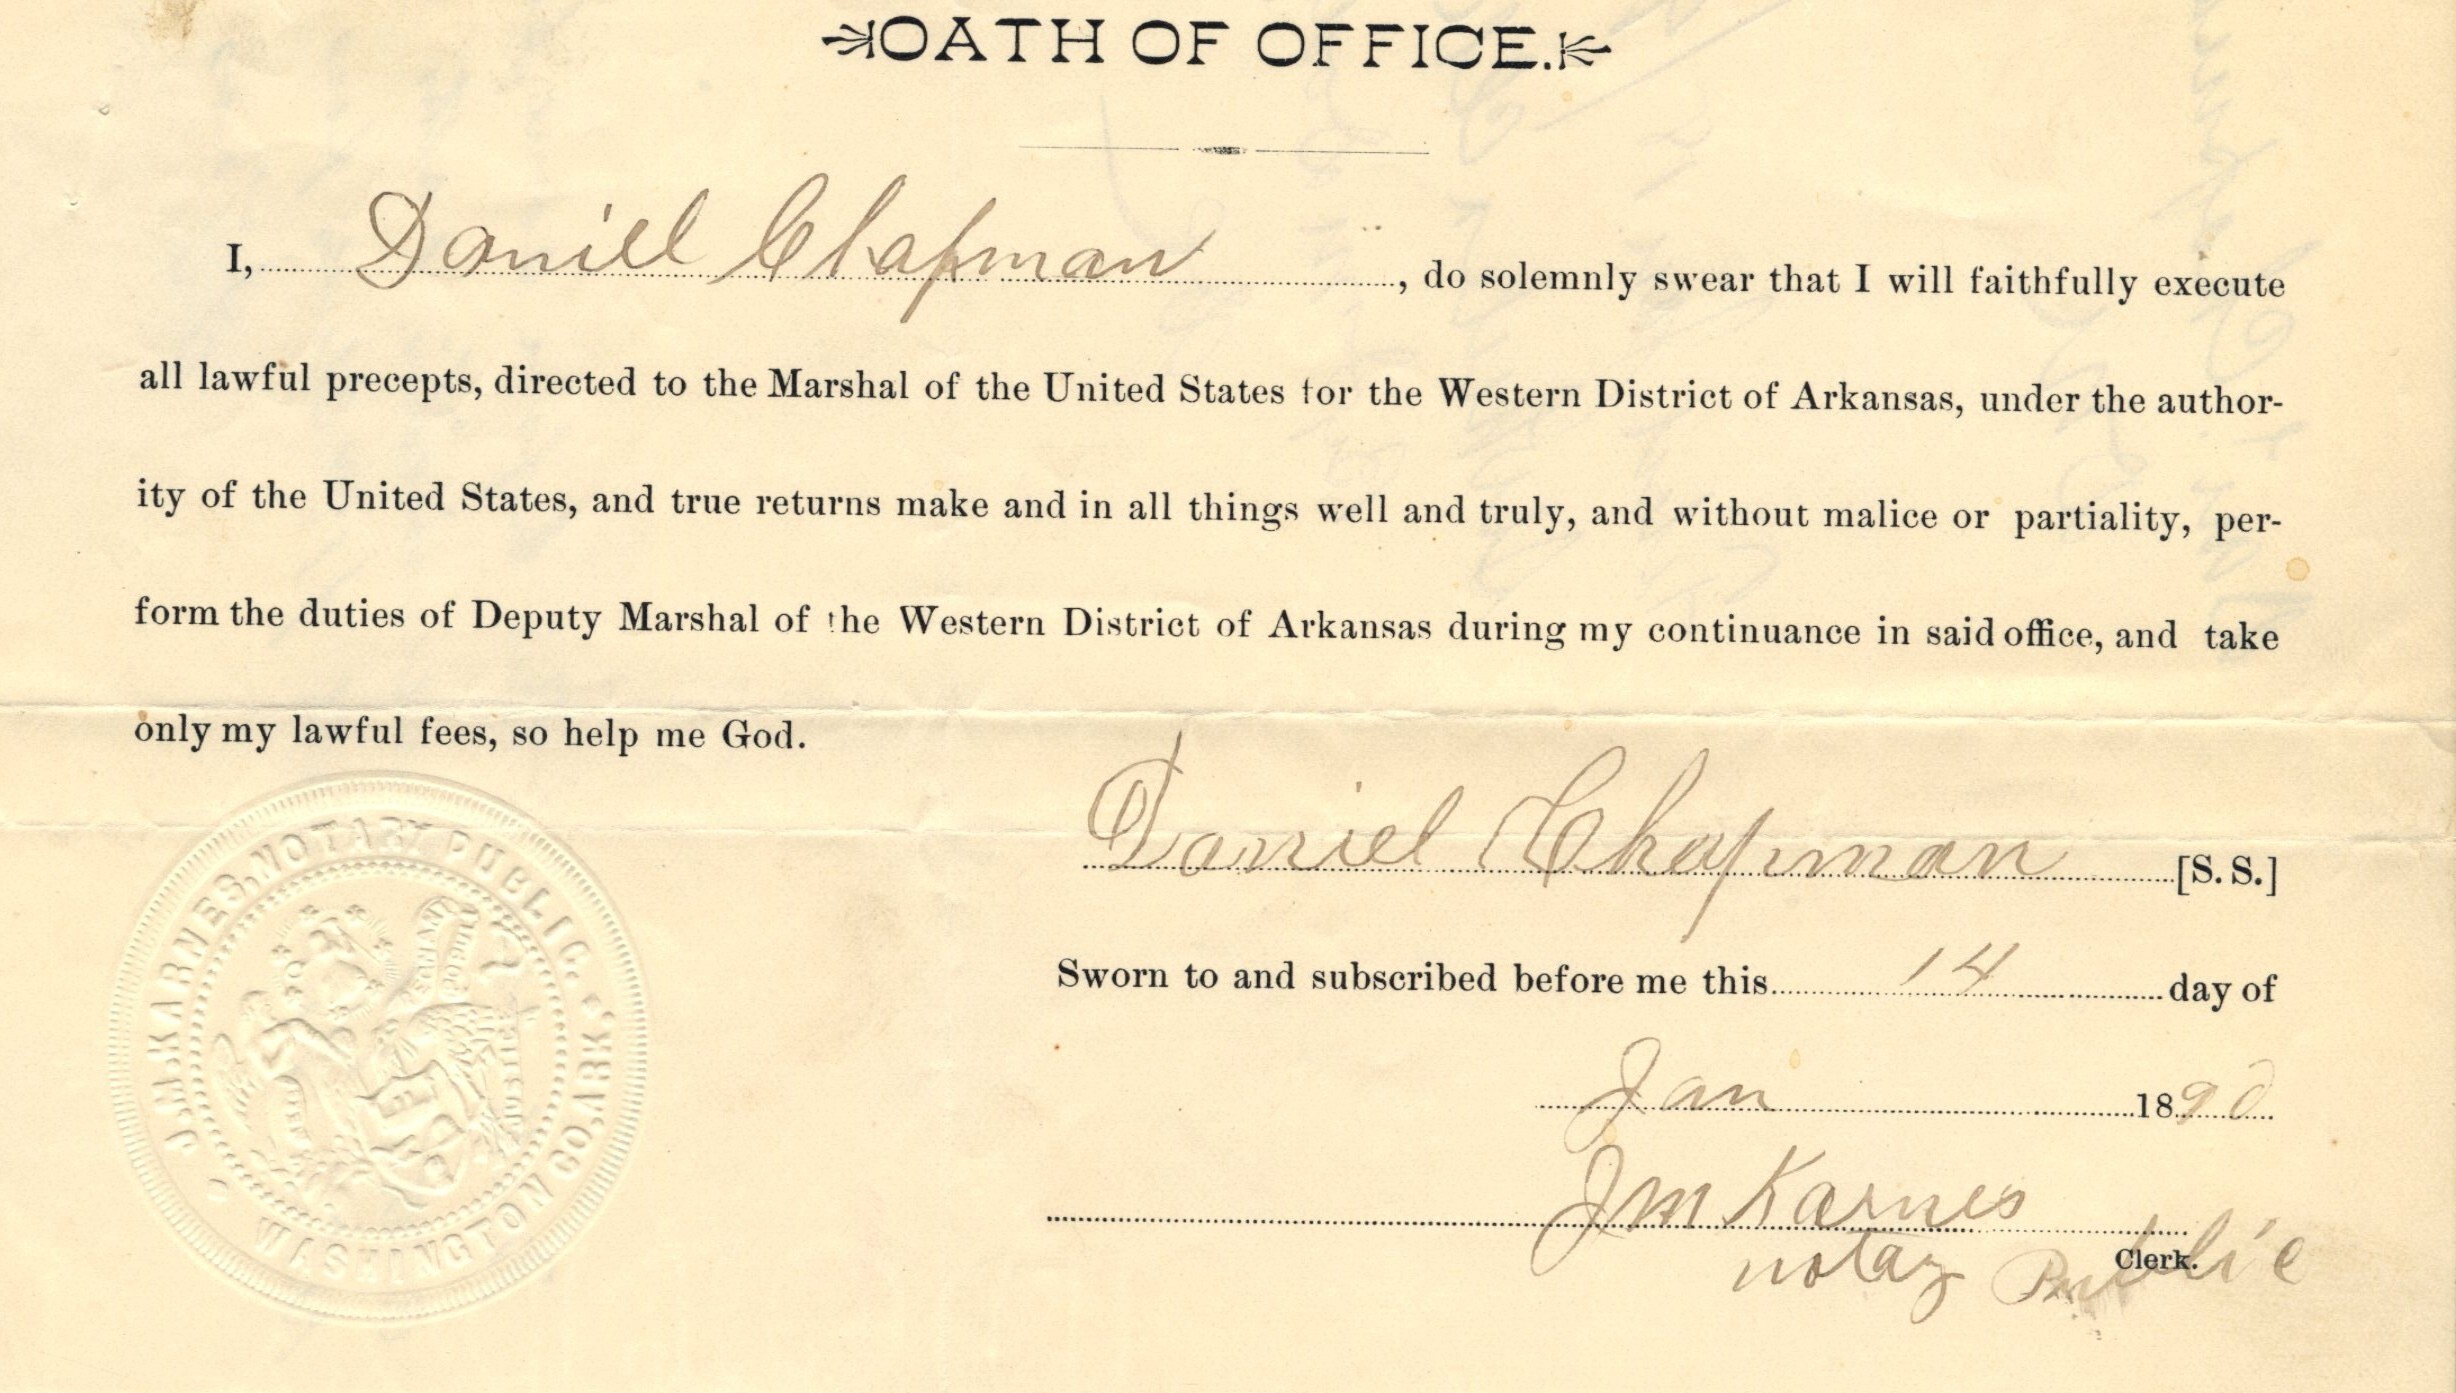 OATH OF OFFICE.
I, Daniel Chapman, do solemnly swear that I will faithfully execute
all lawful precepts, directed to the Marshal of the United States for the Western District of Arkansas, under the author-
ity of the United States, and true returns make and in all things well and truly, and without malice or partiality, per-
form the duties of Deputy Marshal of the Western District of Arkansas during my continuance in said office, and take
only my lawful fees, so help me God.
Daniel Chapman [S. S.]
Sworn to and subscribed before me this 14 day of
Jan 1890
J M Karnes
Clerk.
notay Public
J. M. KARNES, NOTARY PUBLIC.
WASHINGTON CO, ARK.
REGNANT
POPULI
JUSTICE